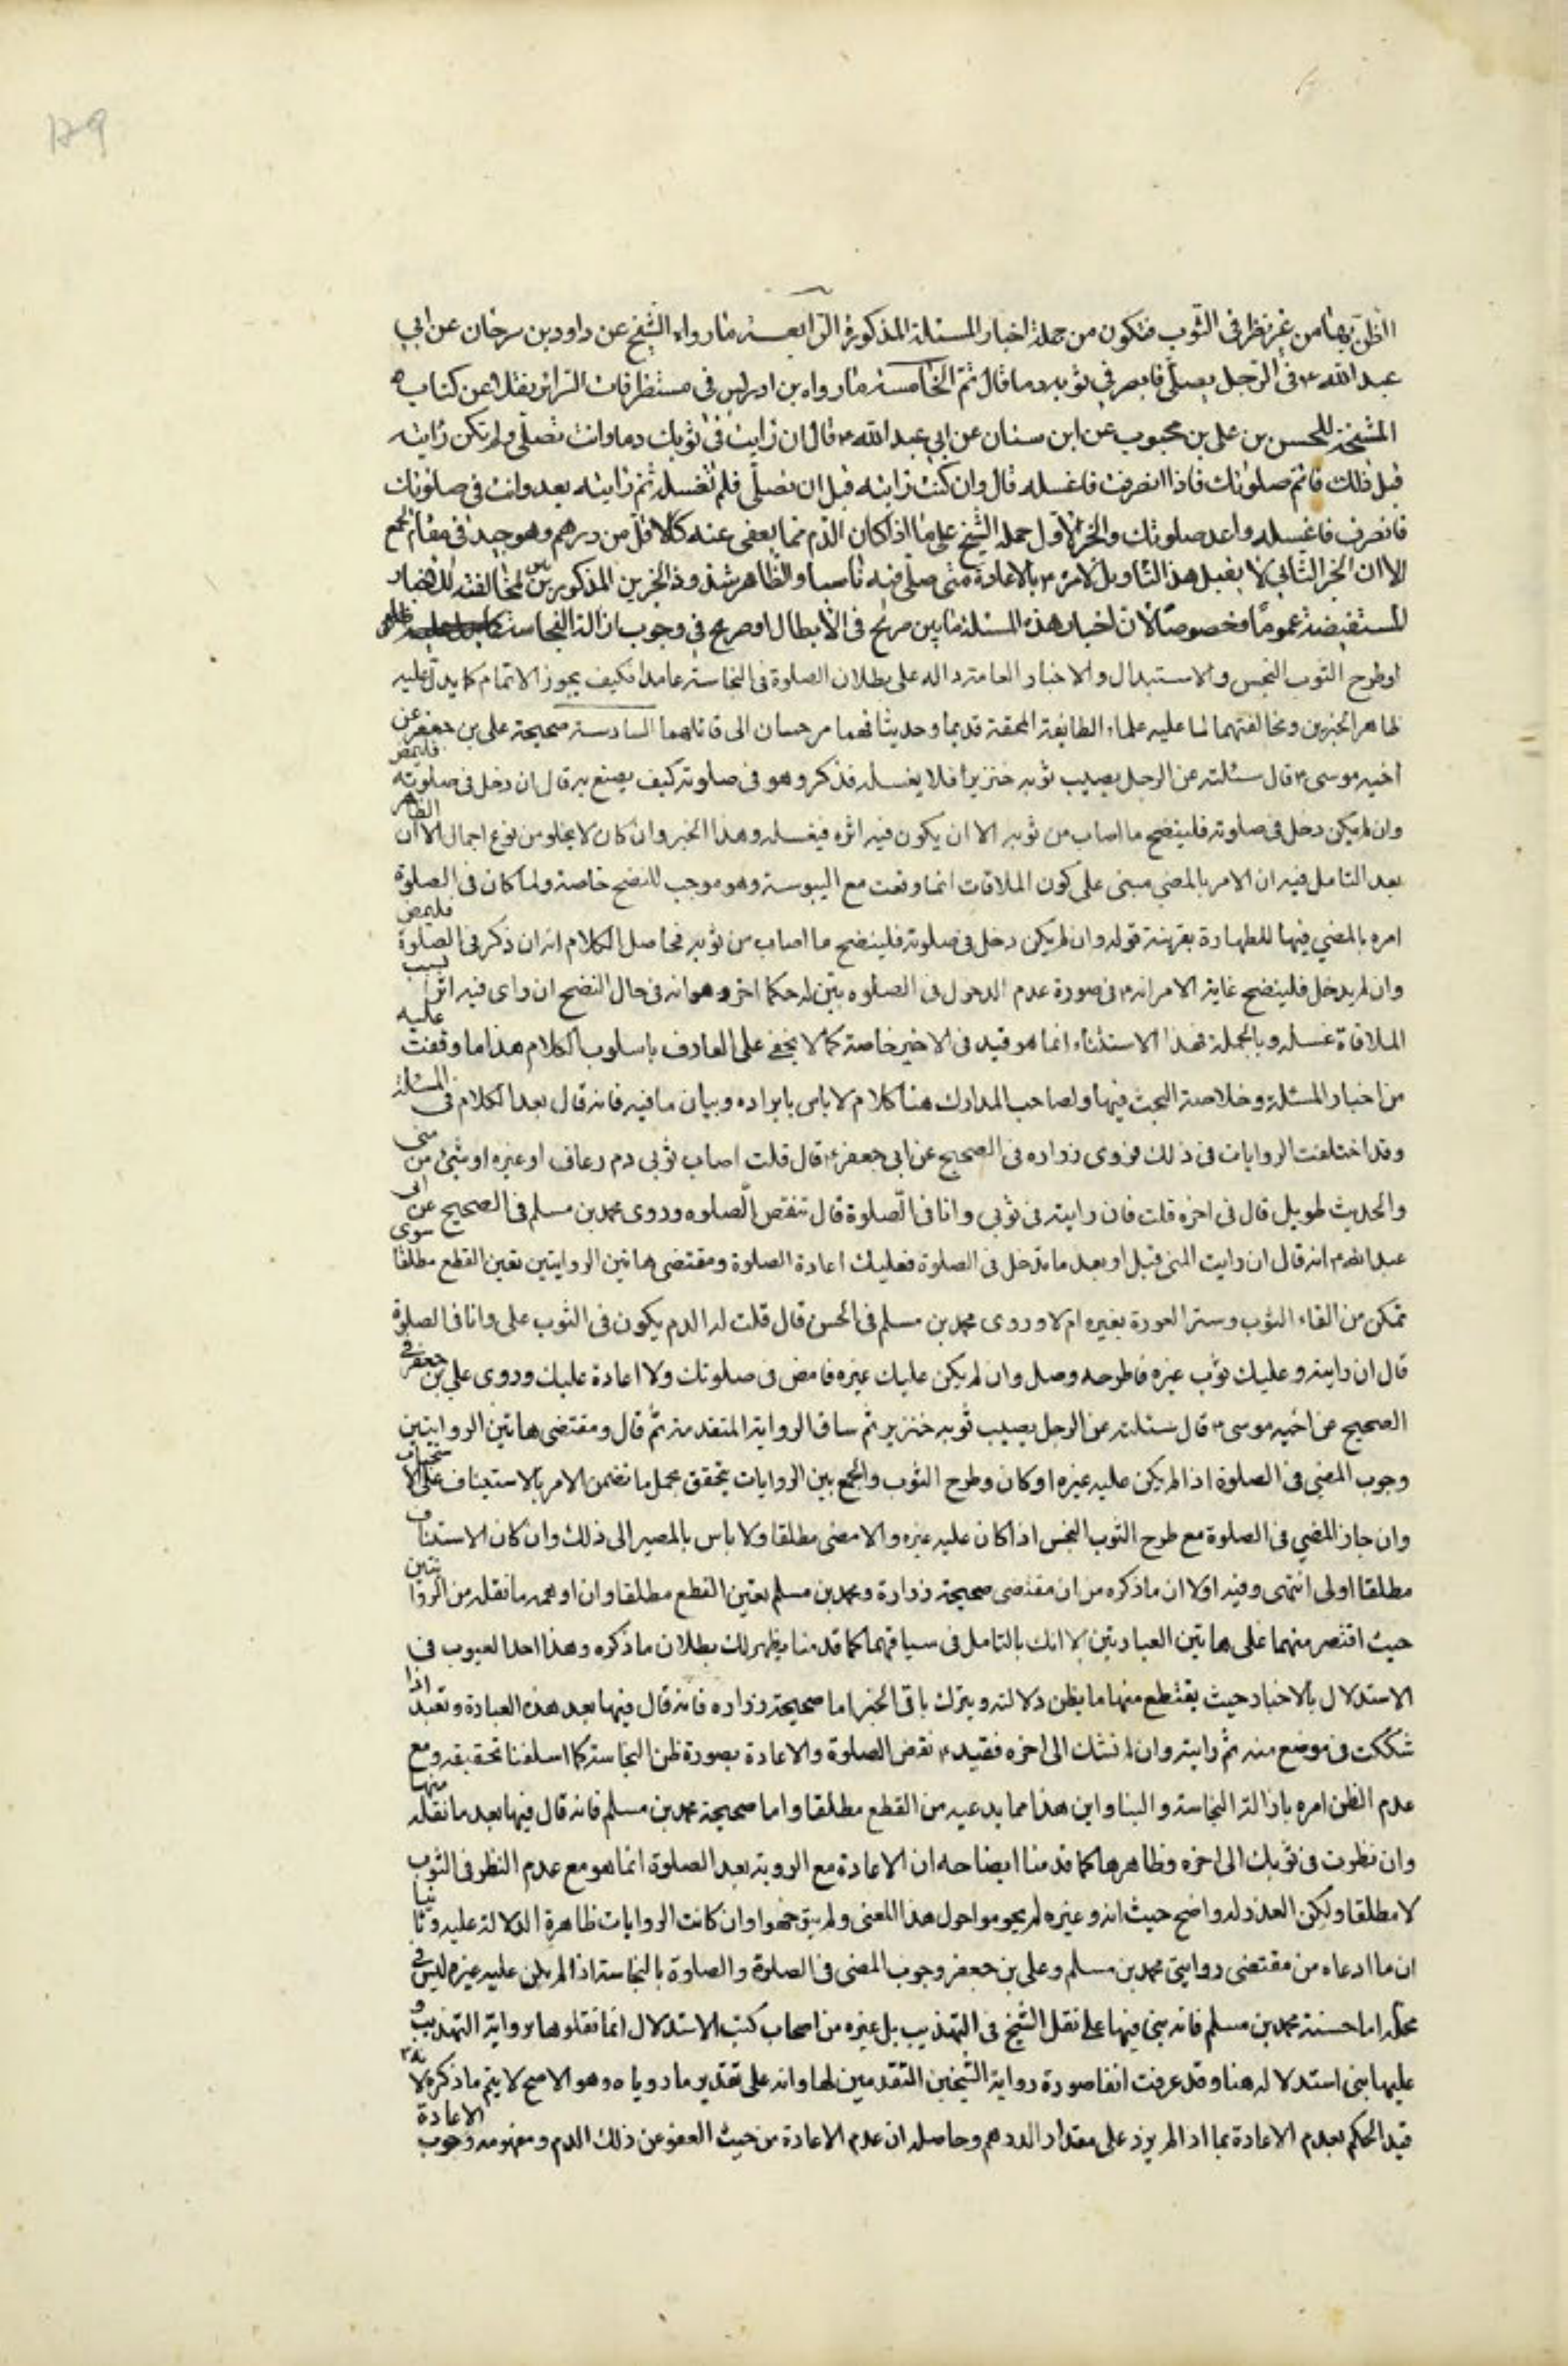 الظن بها من غير نظر في الثوب فتكون من جملة اخبار المسئلة المذكورة الرابعة ما رواه الشيخ عن داود بن سرحان عن ابي
عبد الله ع في الرجل يصلي فابصر في ثوبه دما قال يتم الخامسة ما رواه بن ادريس في مستطرفات السرائر نقلا عن كتاب
المشيخة للحسن بن علي بن محبوب عن ابن سنان عن ابي عبد الله ع قال ان رايت في ثوبك دما وانت تصلي ولم تكن رايته
قبل ذلك فاتم صلوتك فاذا انصرفت فاغسله قال وان كنت رايته قبل ان تصلي فلم تغسله ثم رايته بعد وانت في صلوتك
فانصرف فاغسله واعد صلوتك والخبر الاول حمله الشيخ على ما اذا كان الدم مما يعفى عنه كالاقل من درهم وهو جيد في مقام الجمع
الا ان الخبر الثاني لا يقبل هذا التاويل لامره ع بالاعادة متى صلى فيه ناسيا والظاهر شذوذ الخبرين المذكورين لمخالفته للاخبار
المستفيضة عموما وخصوصا لان اخبار هذه المسئلة ما بين صريح في الابطال او صريح في وجوب ازالة النجاسة
او طرح الثوب النجس والاستبدال والاخبار العامة دالة على بطلان الصلوة في النجاسة عامدا فكيف يجوز الاتمام كما يدل عليه
ظاهر الخبرين ومخالفتهما لما عليه علماء الطايفة المحقة قديما وحديثا فهما مرجسان الى قائلهما السادسة صحيحة علي بن جعفر عن
اخيه موسى ع قال سئلته عن الرجل يصيب ثوبه خنزيرا فلا يغسله فذكر وهو في صلوته كيف يصنع به قال ان دخل في صلوته فليمض
وان لم يكن دخل في صلوته فلينضح ما اصاب من ثوبه الا ان يكون فيه اثره فيغسله وهذا الخبر وان كان لا يخلو من نوع اجمال الا ان الظاهر
بعد التامل فيه ان الامر بالمضي مبنى على كون الملاقات انما وقعت مع اليبوسة وهو موجب للنضح خاصة ولما كان في الصلوة
امره بالمضي فيها للطهارة بقرينة قوله وان لم يكن دخل في صلوته فلينضح ما اصاب من ثوبه فحاصل الكلام انه ان ذكر في الصلوة فليمض
وان لم يدخل فلينضح غاية الامر انه ع في صورة عدم الدخول في الصلوه بين له حكما اخر وهو انه في حال النضح ان راى فيه اثرا بسبب
الملاقاة غسله وبالجملة فهذا الاستثناء انما هو قيد في الاخير خاصة كما لا يخفى على العارف باسلوب الكلام هذا ما وقفت عليه
من اخبار المسئلة وخلاصة البحث فيها ولصاحب المدارك هنا كلام لا باس بايراده وبيان ما فيه فانه قال بعد الكلام في المسئلة
وقد اختلفت الروايات في ذلك فروى زراره في الصحيح عن ابي جعفر ع قال قلت اصاب ثوبي دم رعاف او غيره او شئ من منى
والحديث طويل قال في اخره قلت فان رايته في ثوبي وانا في الصلوة قال تنقص الصلوه وروى محمد بن مسلم في الصحيح عن ابى
عبد الله ع انه قال ان رايت المنى قبل او بعد ما تدخل في الصلوة فعليك اعادة الصلوة ومقتضى هاتين الروايتين تعين القطع مطلقا سوى
تمكن من القاء الثوب وستر العورة بغيره ام لا وروى محمد بن مسلم في الحسن قال قلت له الدم يكون في الثوب على وانا في الصلوة
قال ان رايته وعليك ثوب غيره فاطرحه وصل وان لم يكن عليك غيره فامض في صلوتك ولا اعادة عليك وروى علي بن جعفر في
الصحيح عن اخيه موسى ع قال سئلته عن الرجل يصيب ثوبه خنزير ثم ساق الرواية المتقدمة ثم قال ومقتضى هاتين الروايتين
وجوب المضي في الصلوة اذا لم يكن عليه غيره او كان وطرح الثوب والجمع بين الروايات يتحقق بحمل ما تضمن الامر بالاستيناف على الاستحباب
وان جاز المضي في الصلوة مع طرح الثوب النجس اذا كان عليه غيره والا مضى مطلقا ولا باس بالمصير الى ذلك وان كان الاستيناف
مطلقا اولى انتهى وفيه اولا ان ما ذكره من ان مقتضى صحيحة زرارة ومحمد بن مسلم تعين القطع مطلقا وان اوهمه ما نقله من الروايتين
حيث اقتصر منهما على هاتين العبارتين الا انك بالتامل في سياقهما كما قدمنا يظهر لك بطلان ما ذكره وهذا احد العيوب في
الاستدلال بالاخبار حيث يقتطع منها ما يظن دلالته ويترك باقى الخبر اما صحيحة زراره فانه قال فيها بعد هذه العبارة وتعيد اذا
شككت في موضع منه ثم رايته وان لم تشك الى اخره فقيد ع نقض الصلوة والاعادة بصورة ظن النجاسة كما اسلفنا تحقيقه ومع
عدم الظن امره بازالة النجاسة والبنا واين هذا مما يدعيه من القطع مطلقا واما صحيحة محمد بن مسلم فانه قال فيها بعد ما نقله منها
وان نظرت في ثوبك الى اخره وظاهرها كما قدمنا ايضاحه ان الاعادة مع الروية بعد الصلوة انما هو مع عدم النظر في الثوب
لا مطلقا ولكن العذر له واضح حيث انه وغيره لم يحوموا حول هذا المعنى ولم يتوجهوا وان كانت الروايات ظاهرة الدلالة عليه وثانيا
ان ما ادعاه من مقتضى روايتى محمد بن مسلم وعلي بن جعفر وجوب المضى في الصلوة والصلوة بالنجاسة اذا لم يكن عليه غيره ليس في
محله اما حسنة محمد بن مسلم فانه بنى فيها على نقل الشيخ في التهذيب بل غيره من اصحاب كتب الاستدلال انما نقلوها برواية التهذيب و
عليها بنى استدلاله هنا وقد عرفت انفا صورة رواية الشيخين المتقدمين لها وانه على تقدير ما روياه وهو الاصح لا يتم ما ذكره لانه
قيد الحكم بعدم الاعادة بما اذا لم يزد على مقدار الدرهم وحاصله ان عدم الاعادة من حيث العفو عن ذلك الدم ومفهومه وجوب الاعادة